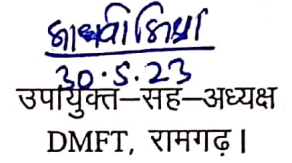 माधवी मिश्रा
30.5.23
उपायुक्त–सह–अध्यक्ष
DMFT, रामगढ़।